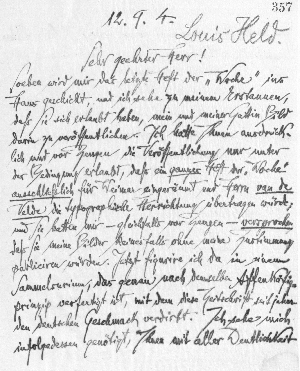 357
12. 9. 4.
Louis Held.
Sehr geehrter Herr!
Soeben wird mir das letzte Heft der „Woche" ins
Haus geschickt, und ich sehe zu meinem Erstaunen,
daß Sie sich erlaubt haben, mein und meiner Gattin Bild
darin zu veröffentlichen. Ich hatte Ihnen ausdrück-
lich und vor Zeugen die Veröffentlichung nur unter
der Bedingung erlaubt, daß ein ganzes Heft der „Woche"
ausschließlich für Weimar eingeräumt und Herrn van de
Velde die typographische Herrichtung übertragen würde,
und Sie hatten mir – gleichfalls vor Zeugen – versprochen
daß Sie meine Bilder keinesfalls ohne meine Zustimmung
publicieren würden. Jetzt figurire ich da in einem
Sammelsurium, das genau nach demselben
prinzip verfertigt ist, mit dem diese Zeitschrift seit Jahren
den deutschen Geschmack verdirbt. Ich sehe mich
infolgedessen genötigt, Ihnen mit aller Deutlichkeit